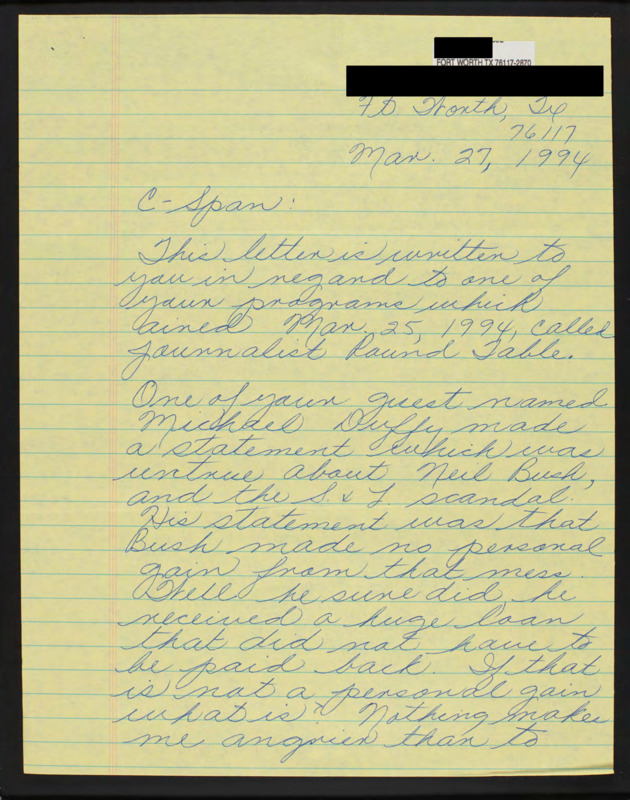 FORT WORTH TX 76117-2870
Ft. Worth, Tx
76117
Mar. 27, 1994
C-Span:
This letter is written to
you in regard to one of
your programs which
aired Mar. 25, 1994, called
Journalist Round Table.
One of your guest named
Michael Duffy made
a statement which was
untrue about Neil Bush,
and the S. & L scandal.
His statement was that
Bush made no personal
gain from that mess.
Well he sure did, he
received a huge loan
that did not have to
be paid back. If that
is not a personal gain
what is? Nothing makes
me angrier than to